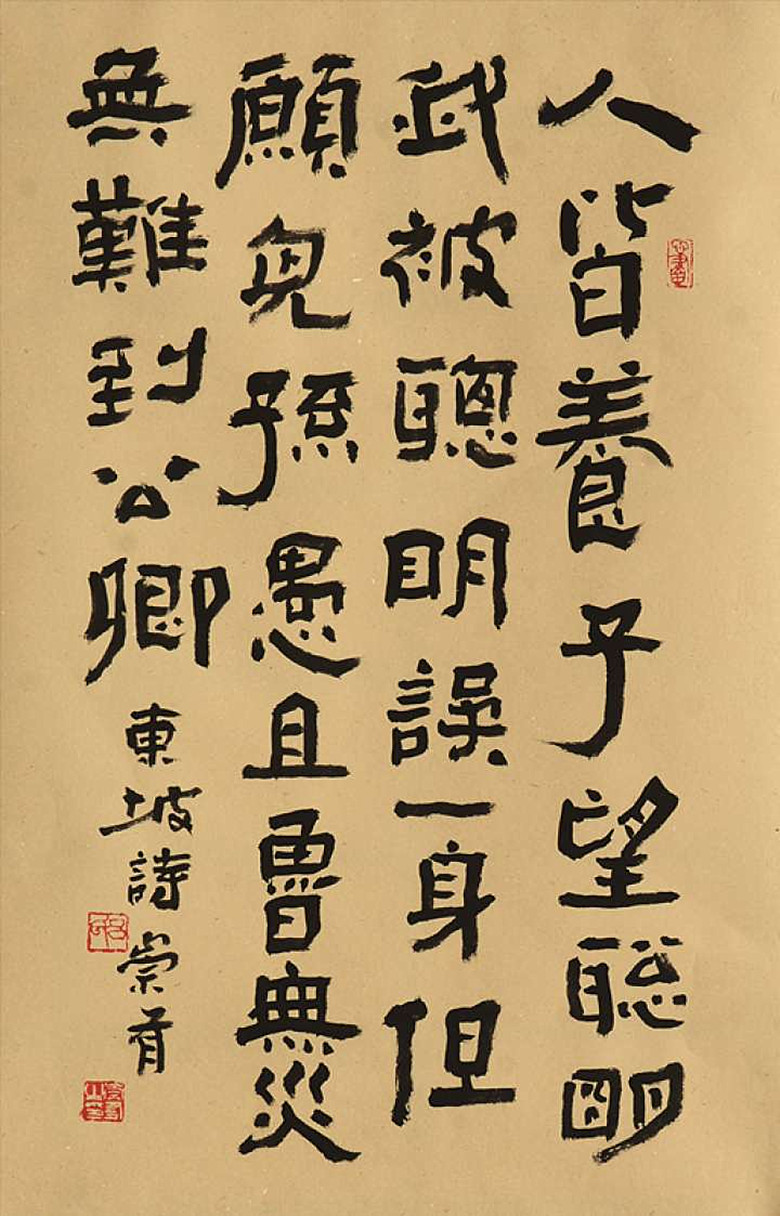 人皆養子望聡明
我被聰明誤一身但
願兒孫愚且魯無災
無難到公卿
東坡詩 崇